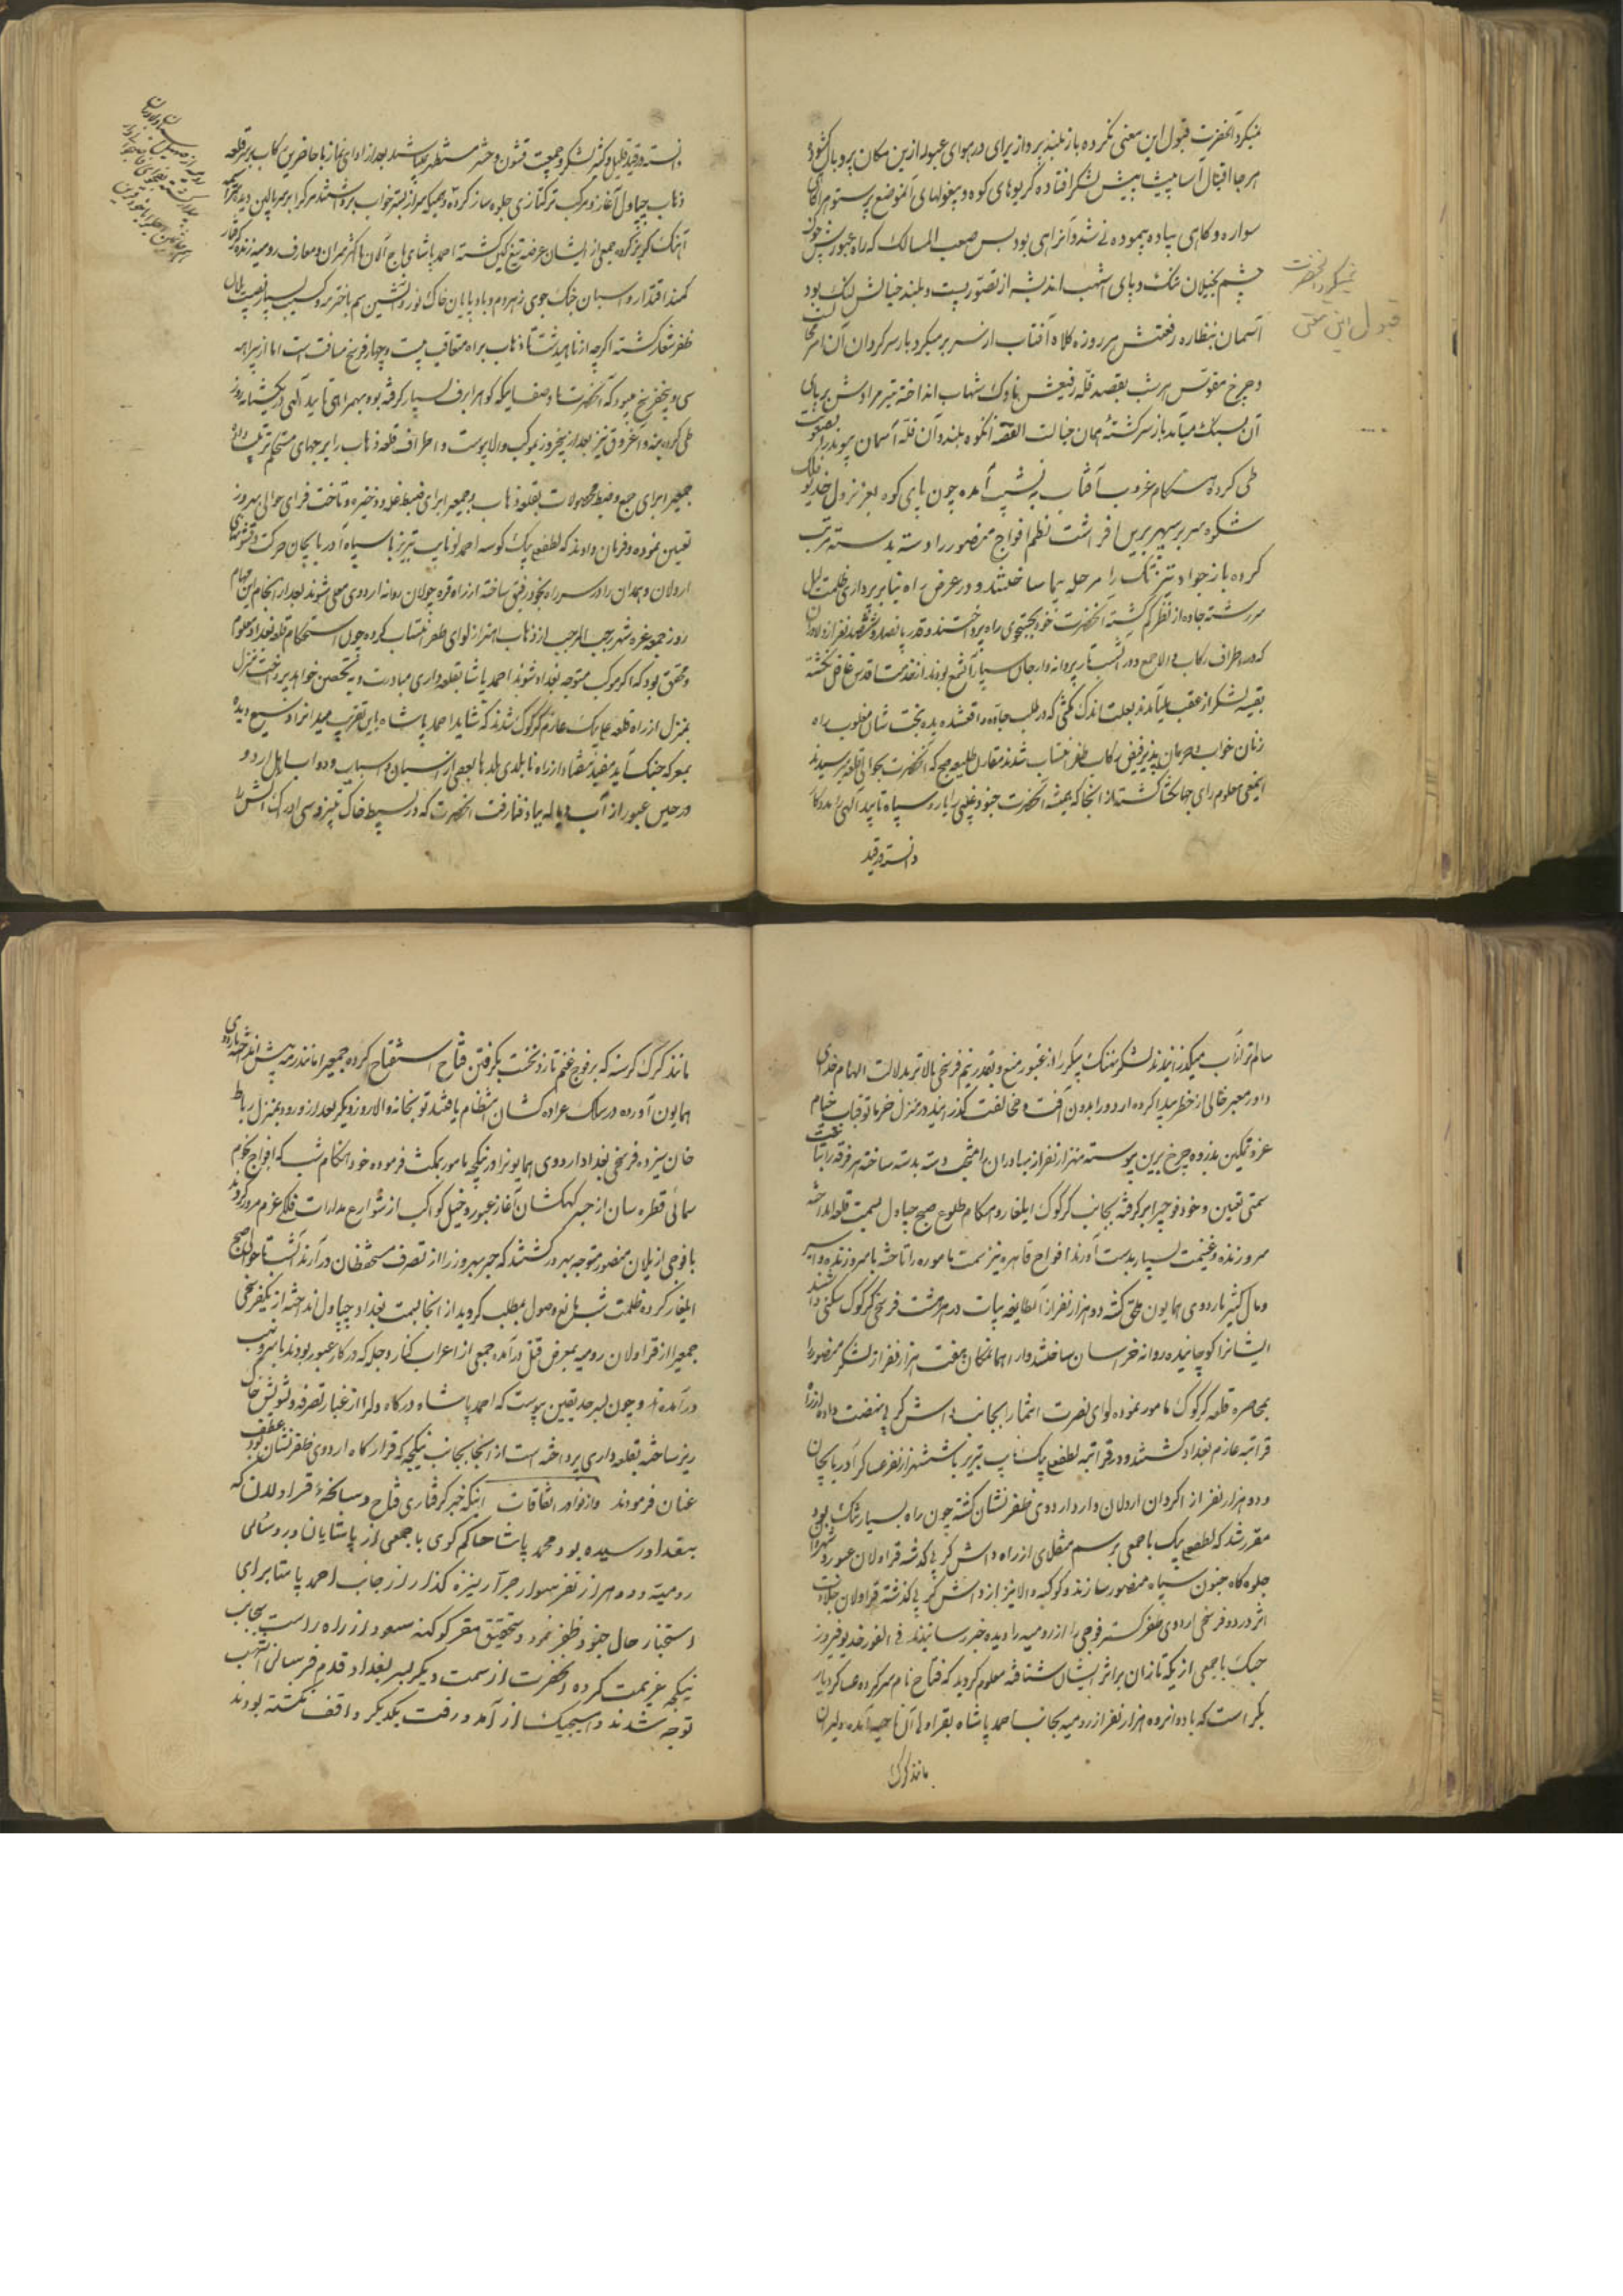 نمیکرد آنحضرت قبول این معنی نکرده باز بلند پرواز رای در هوای عبور ازین مکان پر و بال گشوده
هر جا اقبال آسا پیشاپیش لشکر افتاده کریوهای کوه و بیغولهای آنموضع پرستوه را گاهی
سواره و کاهی پیاده پیموده می شد و آنراهی بود بس صعب المسالک که راه عبورش چون
چشم بخیلان تنک و پای اشهب اندیشه از تصور پست و بلند خیالش لنک بود
آسمان بنظاره رفعتش هر روزه کلاه آفتاب از سر بر میکرد باز سرکردان آن
و چرخ مقوس هر شب بقصد قله رفیعش ناوک شهاب انداخته تیر مرادش بر پای
آن بسنک میآمد باز سرکشته همان خیالت القصه انکوه بلند و آن قله آسمان پیوند را بصعوبت
طی کرده هنکام غروب آفتاب به نشیب آمده چون پای کوه بعز نزول خدیو فلک
شکوه سر بر سپهر برین افراشت نظم افواج منصور را دسته بدسته مرتب
کرده باز جواد تیزتک را مرحله پیما ساختند و در عرض راه بنابر پرده داری ظلمت لیل
سررشته جاده از نظر کم کشته آنحضرت خود بجستجوی راه پرداختند و قدر پانصد و ششصد نفر از دلاوران
که در اطراف رکاب والا جمع و در آنشب تار پروانه وار جان سپار آنشمع بودند از خدمت اقدس غافل نکشته
بقیه لشکر از عقب میآمدند بعلت اندک مکثی که در طلب جاده واقعشد دیده بخت شان مغلوب راه
زنان خواب و حرمان پذیر فیض رکاب ظفر انتساب شدند مقارن طلیعه صبح که آنحضرت بحوالی قلعه رسیدند
اینمعنی معلوم رای جهانکشا کشته از انجا که همیشه آنحضرت جنود غیبی را یار و سپاه تایید الهی را مددکار
دانسته در قید
دانسته در قید قلیل و کثیر لشکر و جمعیت قشون و حشر مستظهر نمیباشند بعد از ادای نماز با حاضرین رکاب بر سر قلعه
ذهاب چپاول آغاز و مرکب ترکتازی جلوه ساز کرده رومیه که سر از بستر خواب برداشتند مرک را بر سر بالین دیده سراسیمه
آهنک کریز کرده جمعی از ایشان عرضه تیغ کین کشته احمد پاشای باج آلان با اکثر سران و معارف رومیه زنده گرفتار
کمند اقتدار و اسپان خنک جوی زهره دم و باد پایان خاک نورد آتشین سم با خیمه و کسیب بسیار نصیب یلان
ظفر شعار کشته اکرچه از ماهیدشت تا ذهاب براه متعارف بیست و چهار فرسخ مسافت است اما از بیراهه
سی و پنجفرسخ میبود که آنحضرت با وصف اینکه کوهرا برف بسیار گرفته بود بهمراهی تایید الهی در یکشبانه روز
طی کرده بنه و آغروق نیز بعد از پنجروز بموکب والا پیوست و اطراف قلعه ذهاب را ببرجهای مستحکم ترتیب داده
جمعی را برای جمع و ضبط محصولات بقلعه ذهاب و جمعی را برای ضبط غله و ذخیره و تاخت قرای حوالی بهروز
تعیین نموده و فرمان دادند که لطفعلی بیک کوسه احمدلو نایب تبریز با سپاه آذربایجان حرکت و قشونهای
اردلان و همدان را در سر راه بخود رفیق ساخته از راه قره چولان روانه اردوی معلی شوند بعد از انجام این مهام
روز جمعه غره شهر رجب المرجب از ذهاب اهتزاز لوای ظفر انتساب کرده چون استحکام قلعه بغداد معلوم
و محقق بود که اکر موکب متوجه بغداد شوند احمد پاشا بقلعه داری مبادرت و به تحصن خواهد پرداخت منزل
بمنزل از راه قلعه علی بیک عازم کرکوک شدند که شاید احمد پاشا باین تقریب میدانرا وسیع دیده
بمعرکه جنک آید مفید نیفتاد از راه نابلدی بلدها بعضی از اسبان و اسباب و دواب اهل اردو
در حین عبور از آب دیاله بباد فنا رفت آنحضرت که در بسیط خاک تیز روسی ادراک آتش را
سالم از آب میکذرانیدند لشکر نهنک پیکر را از عبور منع و بقدر نیم فرسخ بالاتر بدلالت الهام خدای
داور معبر خالی از خطر پیدا کرده اردو را بدون آفت و مخالفت کذرانیده در منزل خرماتو قباب خیام
عز و تمکین بذروه چرخ برین پیوسته هزار نفر از بهادران را منتخب و دسته بدسته ساخته هر فرقه را بتاخت
سمتی تعیین و خود فوجی را بر گرفته بجانب کرکوک ایلغار و هنکام طلوع صبح چپاول بسمت قلعه انداخته
سر و زنده و غنیمت بسیار بدست آوردند افواج قاهره نیز سمت ماموره را تاخته با سر و زنده و اسیر
و مال کثیر باردوی همایون ملحق کشته دو هزار نفر از آنطایفه بیات در هشت فرسخی کرکوک سکنی داشتند
ایشانرا کوچانیده روانه خراسان ساختند و از همانمکان هفت هزار نفر از لشکر منصور را
بمحاصره قلعه کرکوک مامور نموده لوای نصرت انتما را بجانب داش کرپی نهضت داده از راه
قراتپه عازم بغداد کشتند و در قراتپه لطفعلی بیک نایب تبریز با ششهزار نفر عساکر آذربایجان
و دو هزار نفر از اکراد اردلان وارد اردوی ظفر نشان کشته چون راه بسیار تنک بود
مقرر شد که لطفعلی بیک با جمعی برسم منقلای از راه داش کرپی کذشته قراولان عبور و شهروان را
جلوه کاه جنود سپاه منصور سازند و کوکبه والا نیز از داش کرپی کذشته قراولان جلادت
اثر در دو فرسخی اردوی ظفر کستر فوجی را از رومیه را دیده خبر رسانیدند فی الفور خدیو فیروز
جنک با جمعی از یکه تازان بر اثر ایشان شتافته معلوم کردید که فتاح نام سرکرده عساکر دیار
بکر است که با دوازده هزار نفر از رومیه بجانب احمد پاشا بقراولی آن ناحیه آمده دلیران
مانند کرک
مانند کرک کرسنه که بر فوج غنم تازد نخست بکرفتن فتاح استفتاح کرده جمعی را مانند رمه پیش انداخته باردوی
همایون آورده در سلک عراده کشان انتظام یافتند توپخانه والا روز دیکر بعد از ورود بمنزل رباط
خان سیزده فرسخی بغداد اردوی همایونرا در نیکجه مامور بمکث فرموده خود هنکام شب که افواج نجوم
سمائی قطره سان از جسر کهکشان آغاز عبور و خیل کواکب از شوارع مدارات فلکی عزم مرور کردند
با فوجی از یلان منصور متوجه بهرز کشتند که جسر بهروز را از تصرف مستحفظان در آرند آنشب تا حوالی صبح
ایلغار کرده ظلمت شب مانع وصول بمطلب کردید از انجا بسمت بغداد چپاول انداخته از یکفرسخی
جمعی را از قراولان رومیه بمعرض قتل در آمده جمعی از اعراب کنار دجله که در کار عبور بودند با نهب
در آمدند و چون بسرحد یقین پیوست که احمد پاشا درکاه دلرا از غبار تفرقه و تشویش خاک
ریز ساخته بقلعه داری پرداخته است از انجا بجانب نیکجه که قرار کاه اردوی ظفر نشان بود عطف
عنان فرمودند و از نوادر اتفاقات اینکه خبر کرفتاری فتاح و سانحهٔ قراولان که
ببغداد رسیده بود محمد پاشا حاکم کوی با جمعی از پاشایان و روسای
رومیه و ده هزار نفر سوار جرار نیزه گذار از جانب احمد پاشا برای
استخبار حال جنود ظفر نمود و تحقیق مقر کوکبه مسعود از راه راست بجانب
نیکجه عزیمت کرده آنحضرت از سمت دیکر بسر بغداد قدم فرسای اشهب
توجه شدند و هیچیک از آمد و رفت یکدیکر واقف نکشته بودند
نمیکرد آنحضرت
قبول این معنی